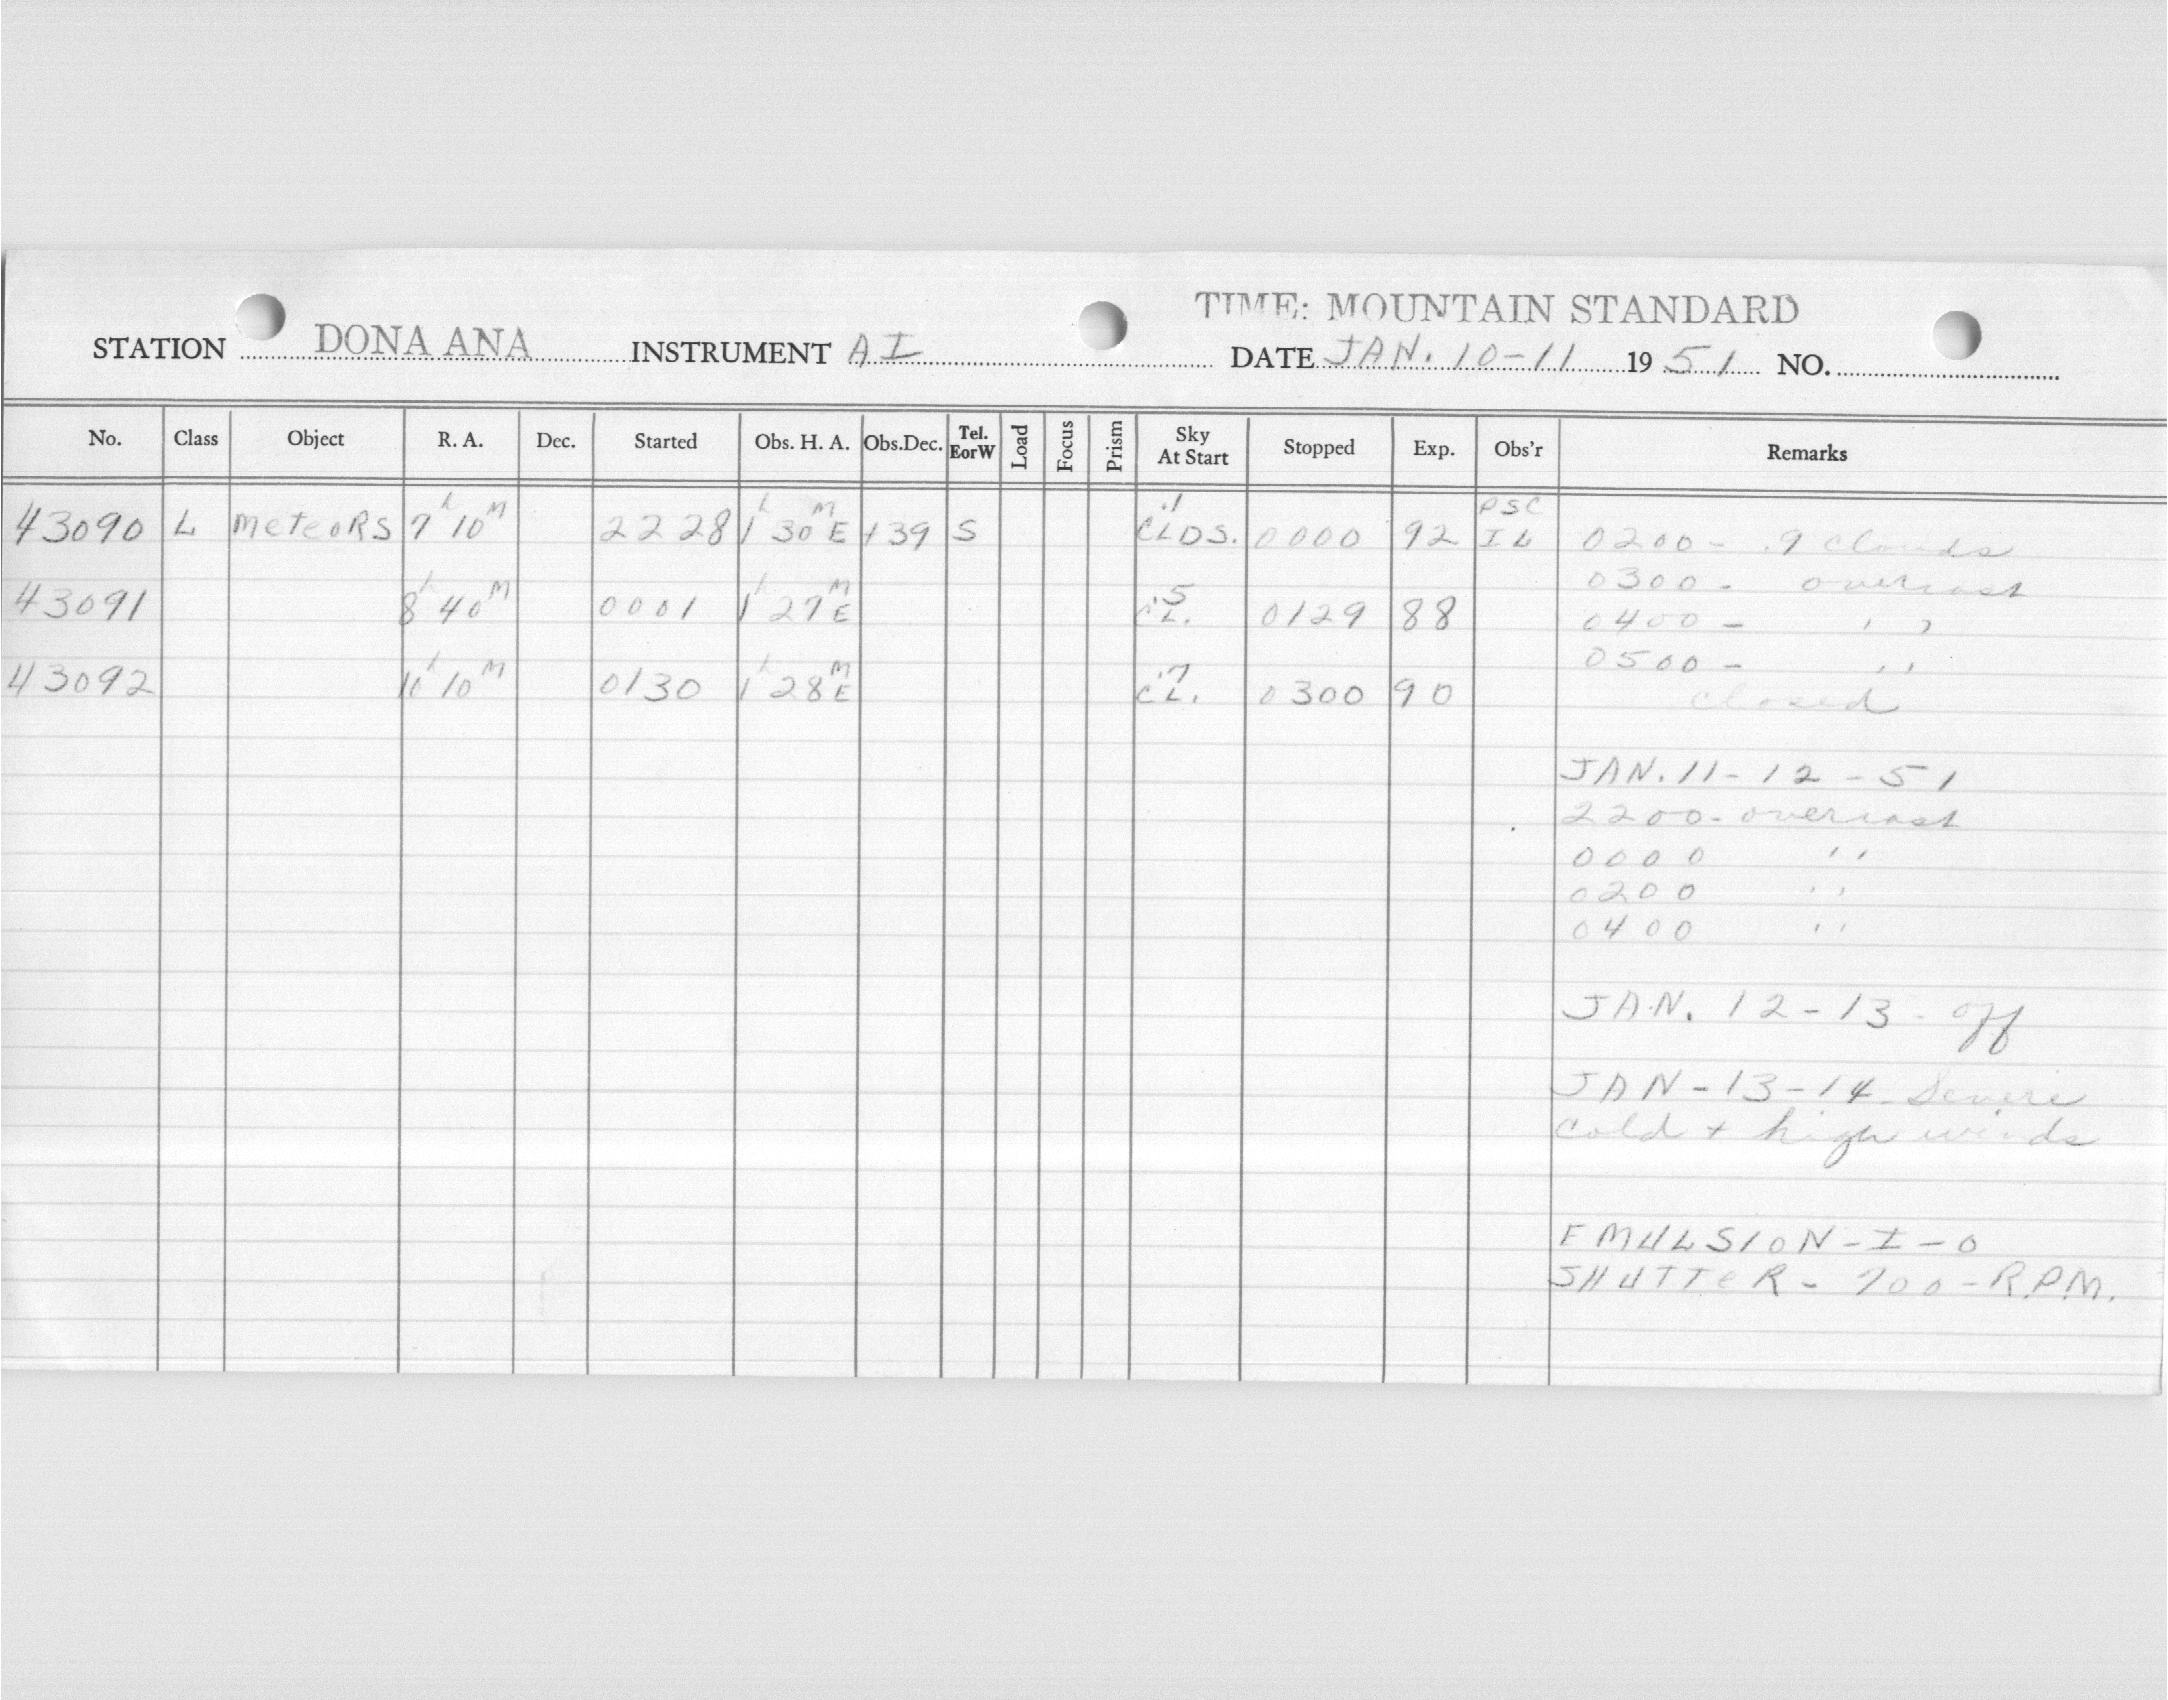 TIME: MOUNTAIN STANDARD
STATION DONA ANA INSTRUMENT AI DATE JAN. 10-11 1951 NO.
No. Class Object R. A. Dec. Started Obs. H. A. Obs.Dec. Tel. EorW Load Focus Prism Sky At Start Stopped Exp. Obs'r Remarks
43090 L MeteoRS 7h 10M 2228 1h 30M E +39 S .1 CLDS. 0000 92 PSC IL 0200 - .9 clouds
0300 - overcast
43091 8h 40M 0001 1h 27M E .5 CL. 0129 88 0400 - ' '
0500 - ' '
43092 10h 10M 0130 1h 28M E .7 CL. 0300 90 closed
JAN. 11-12-51
2200 - overcast
0000 ' '
0200 ' '
0400 ' '
JAN. 12-13 - off
JAN-13-14 - Severe
cold + high winds
EMULSION-I-O
SHUTTeR - 700-R.P.M.